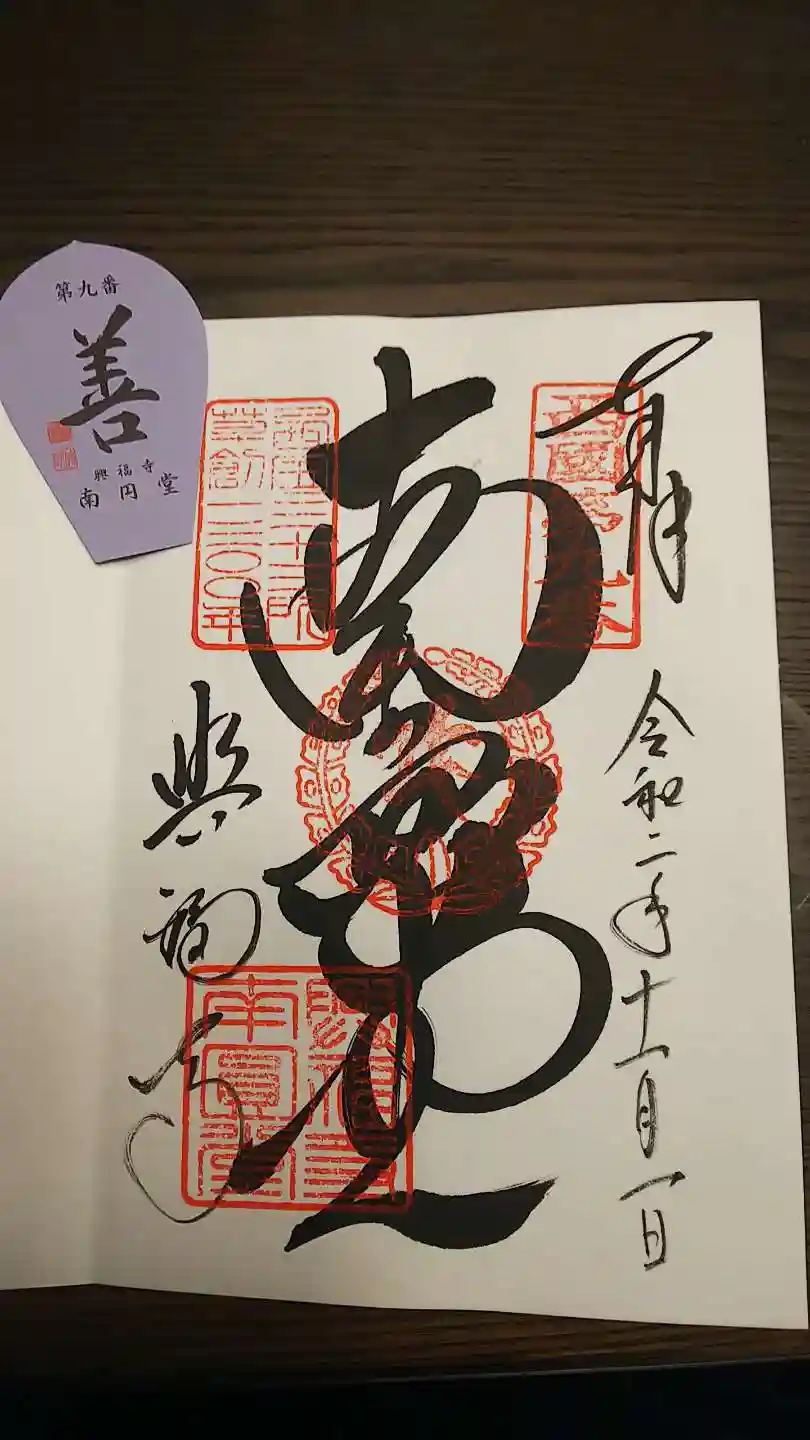 第九番
善
興福寺
南円堂
奉拝
令和二年十一月一日
西國第九番
南円堂
西国三十三所
草創一三〇〇年
興福寺
興福寺
南圓堂